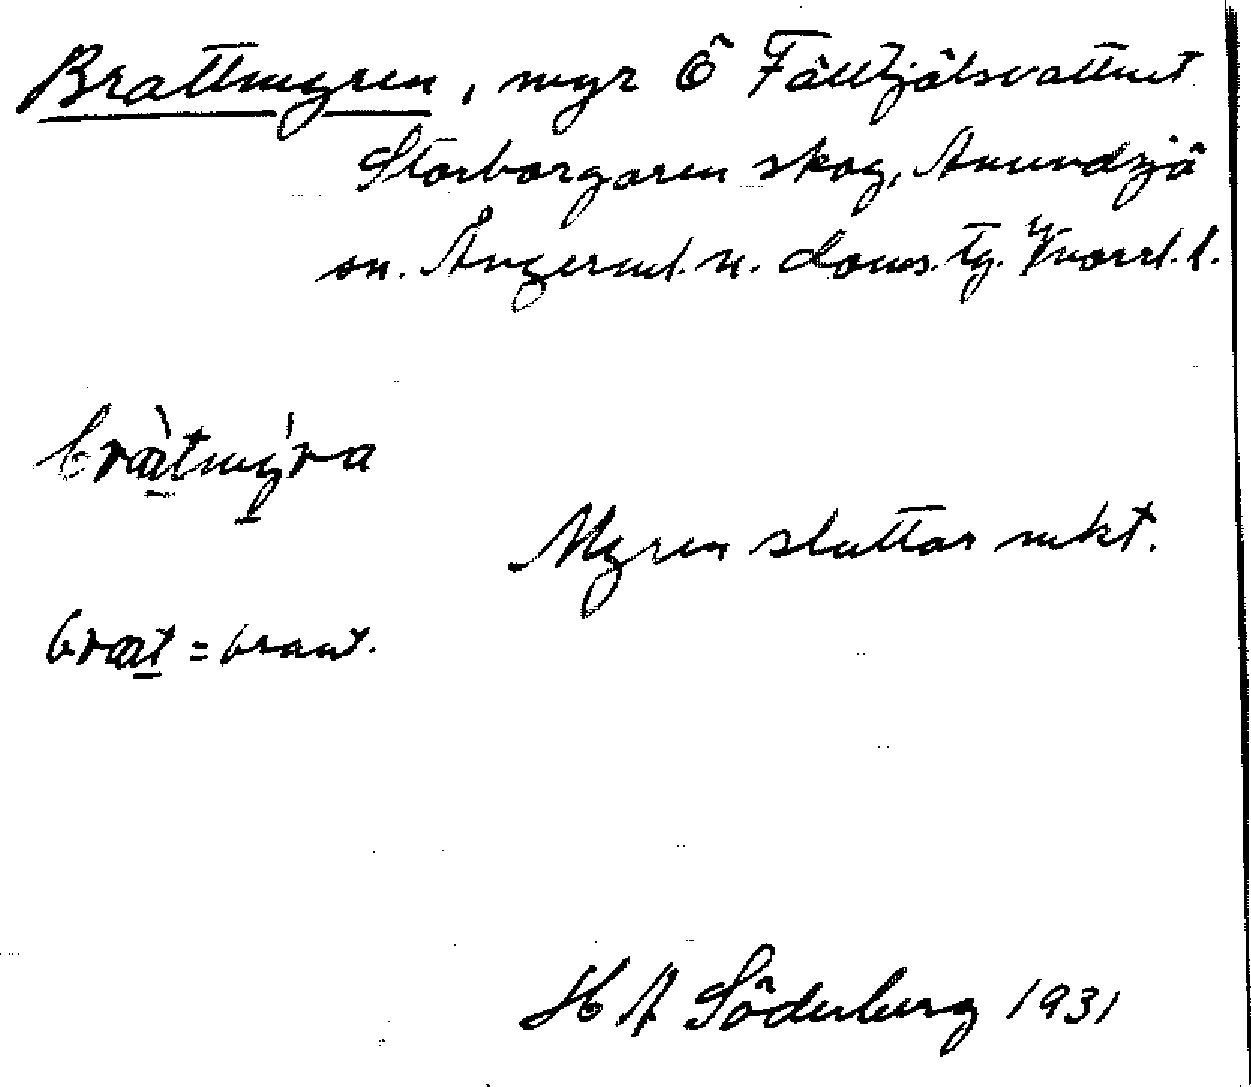 Brattmyren, myr Ö Fälltjälsvattnet
Storborgaren skog, Anundsjö
sn. Ångerml. n. doms. tg. Vnorrl. l.
bràtmýra
Myren sluttar mkt.
brat = brant.
H A Söderberg 1931